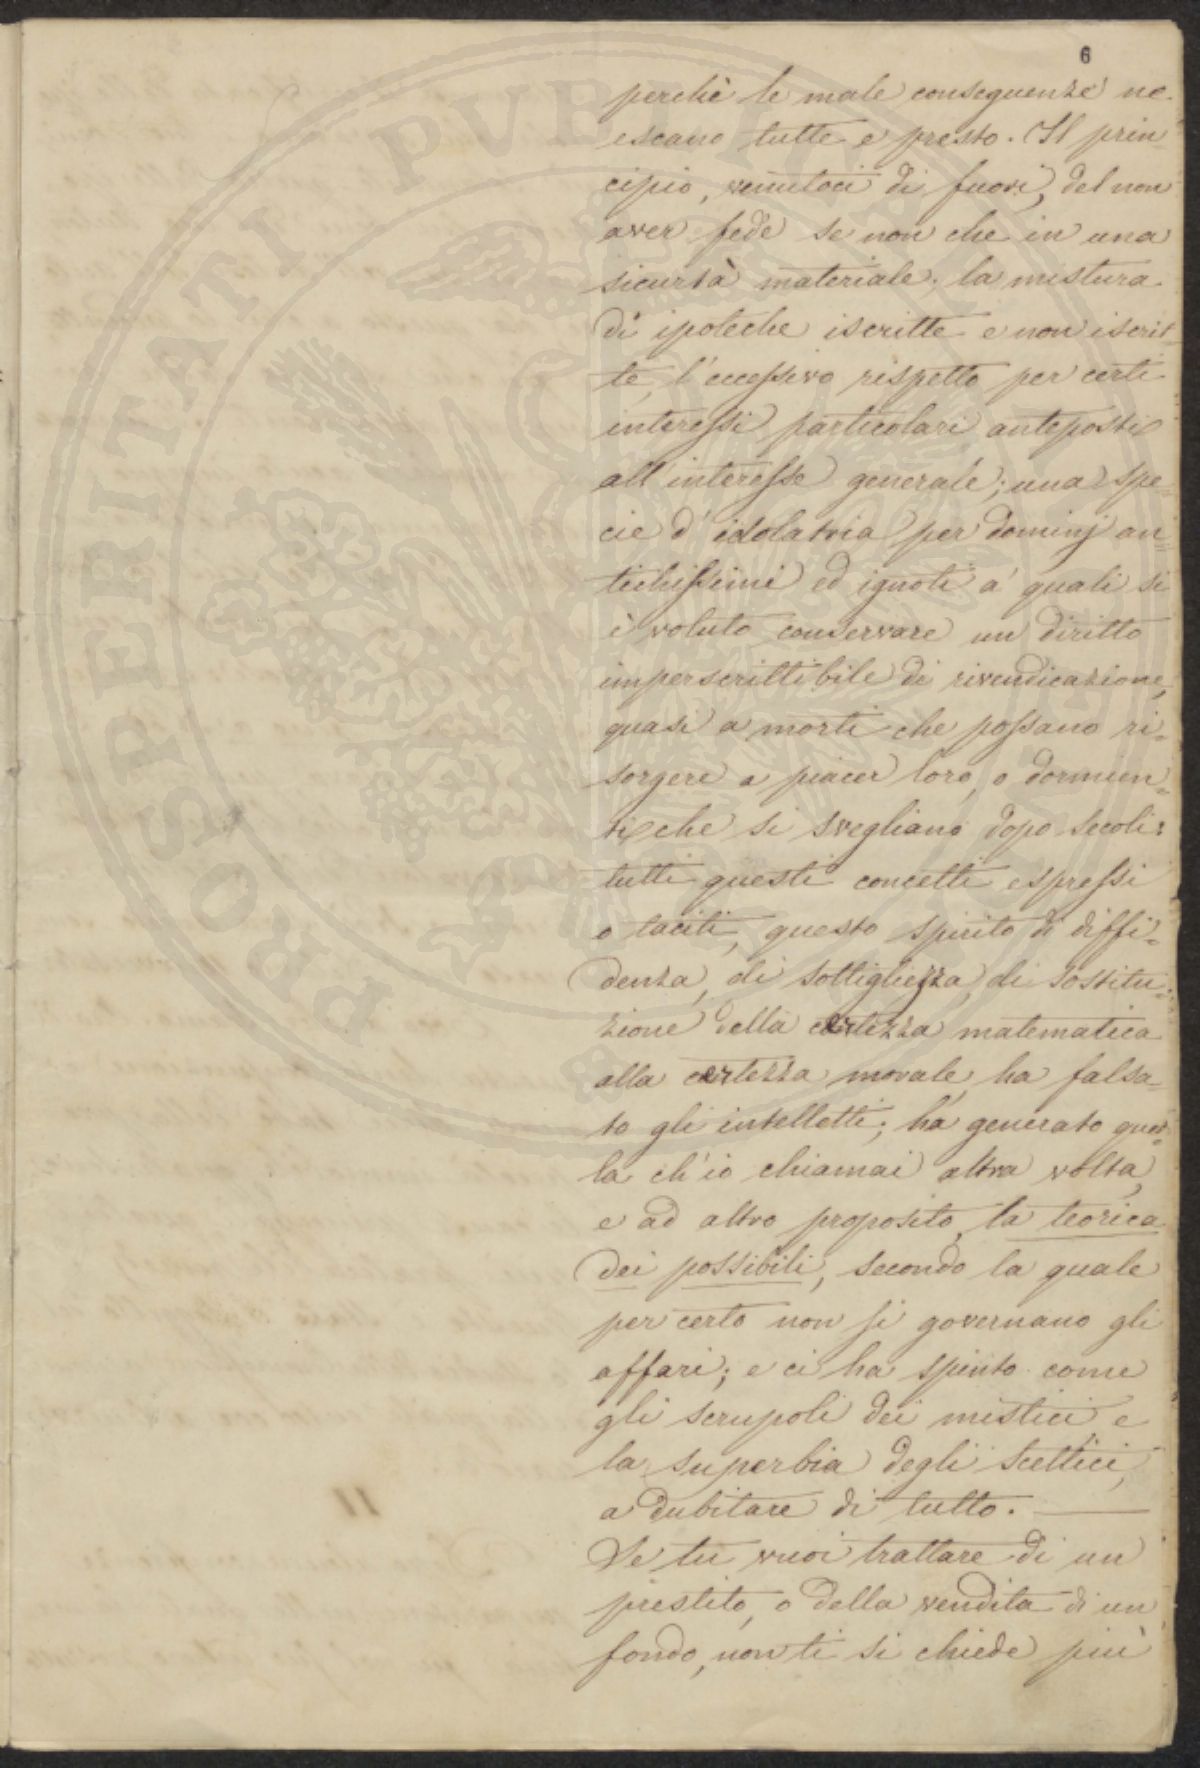 6
perchè le male conseguenze ne
escano tutte e presto. Il prin
cipio, venutoci di fuori, del non
aver fede se non che in una
sicurtà materiale; la mistura
di ipoteche iscritte e non iscrit-
te, l'eccessivo rispetto per certi
interessi particolari anteposti
all'interesse generale; una spe=
cie d'idolatria per dominj an=
tichissimi ed ignoti a' quali si
è voluto conservare un diritto
imperscrittibile di rivendicazione,
quasi a morti che possano ri=
sorgere a piacer loro, o dormien=
ti che si svegliano dopo secoli:
tutti questi concetti espressi
o taciti, questo spirito di diffi=
denza, di sottigliezza, di sostitu=
zione della certezza matematica
alla certezza morale, ha falsa=
to gli intelletti; ha generato quel=
la ch'io chiamai altra volta,
e ad altro proposito, la teorica
dei possibili, secondo la quale
per certo non si governano gli
affari; e ci ha spinto come
gli scrupoli dei mistici, e
la superbia degli scettici,
a dubitare di tutto. —
Se tu vuoi trattare di un
prestito, o della vendita di un
fondo, non ti si chiede più
PROSPERITATI PVBLICAE